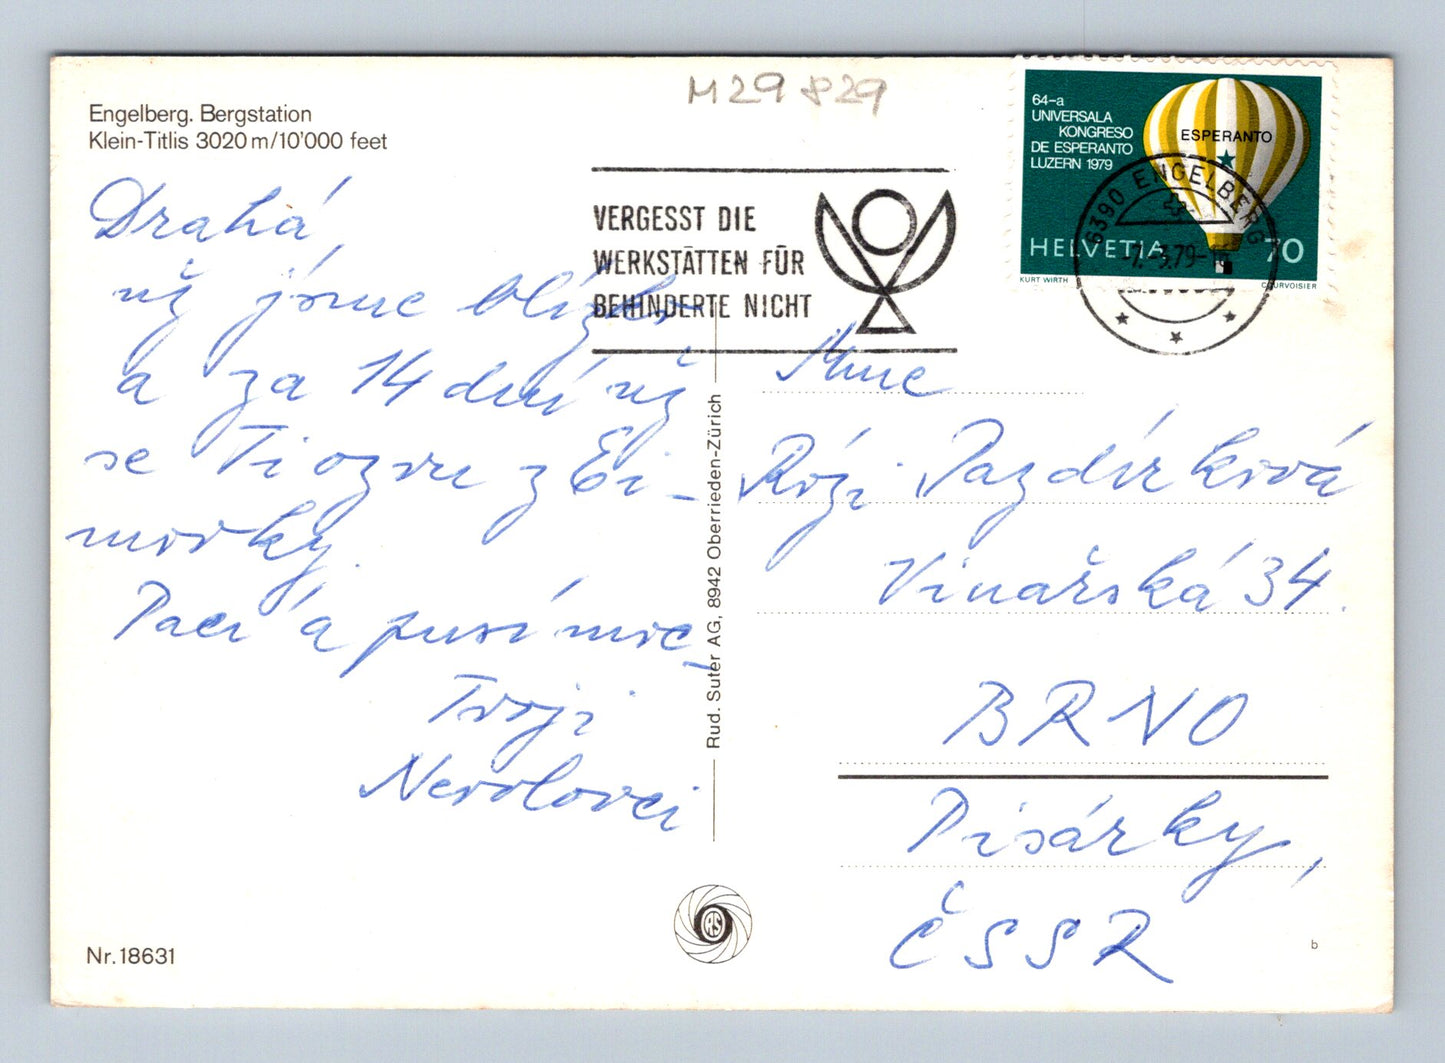 M29 829
Engelberg. Bergstation
Klein-Titlis 3020 m/10'000 feet
Drahá,
už jsme blízko
a za 14 dní už
se Ti ozvu z Ei-
morky.
Pací a pusí moc
Tvoji
Nevolovci
Nr. 18631
VERGESST DIE
WERKSTÄTTEN FÜR
BEHINDERTE NICHT
64-a
UNIVERSALA
KONGRESO
DE ESPERANTO
LUZERN 1979
ESPERANTO
HELVETIA 70
KURT WIRTH
COURVOISIER
6390 ENGELBERG
-7.-3.79-
Rud. Suter AG, 8942 Oberrieden-Zürich
Rózi Pazdírková
Vinařská 34.
BRNO
Pisárky,
ČSSR
RS
b